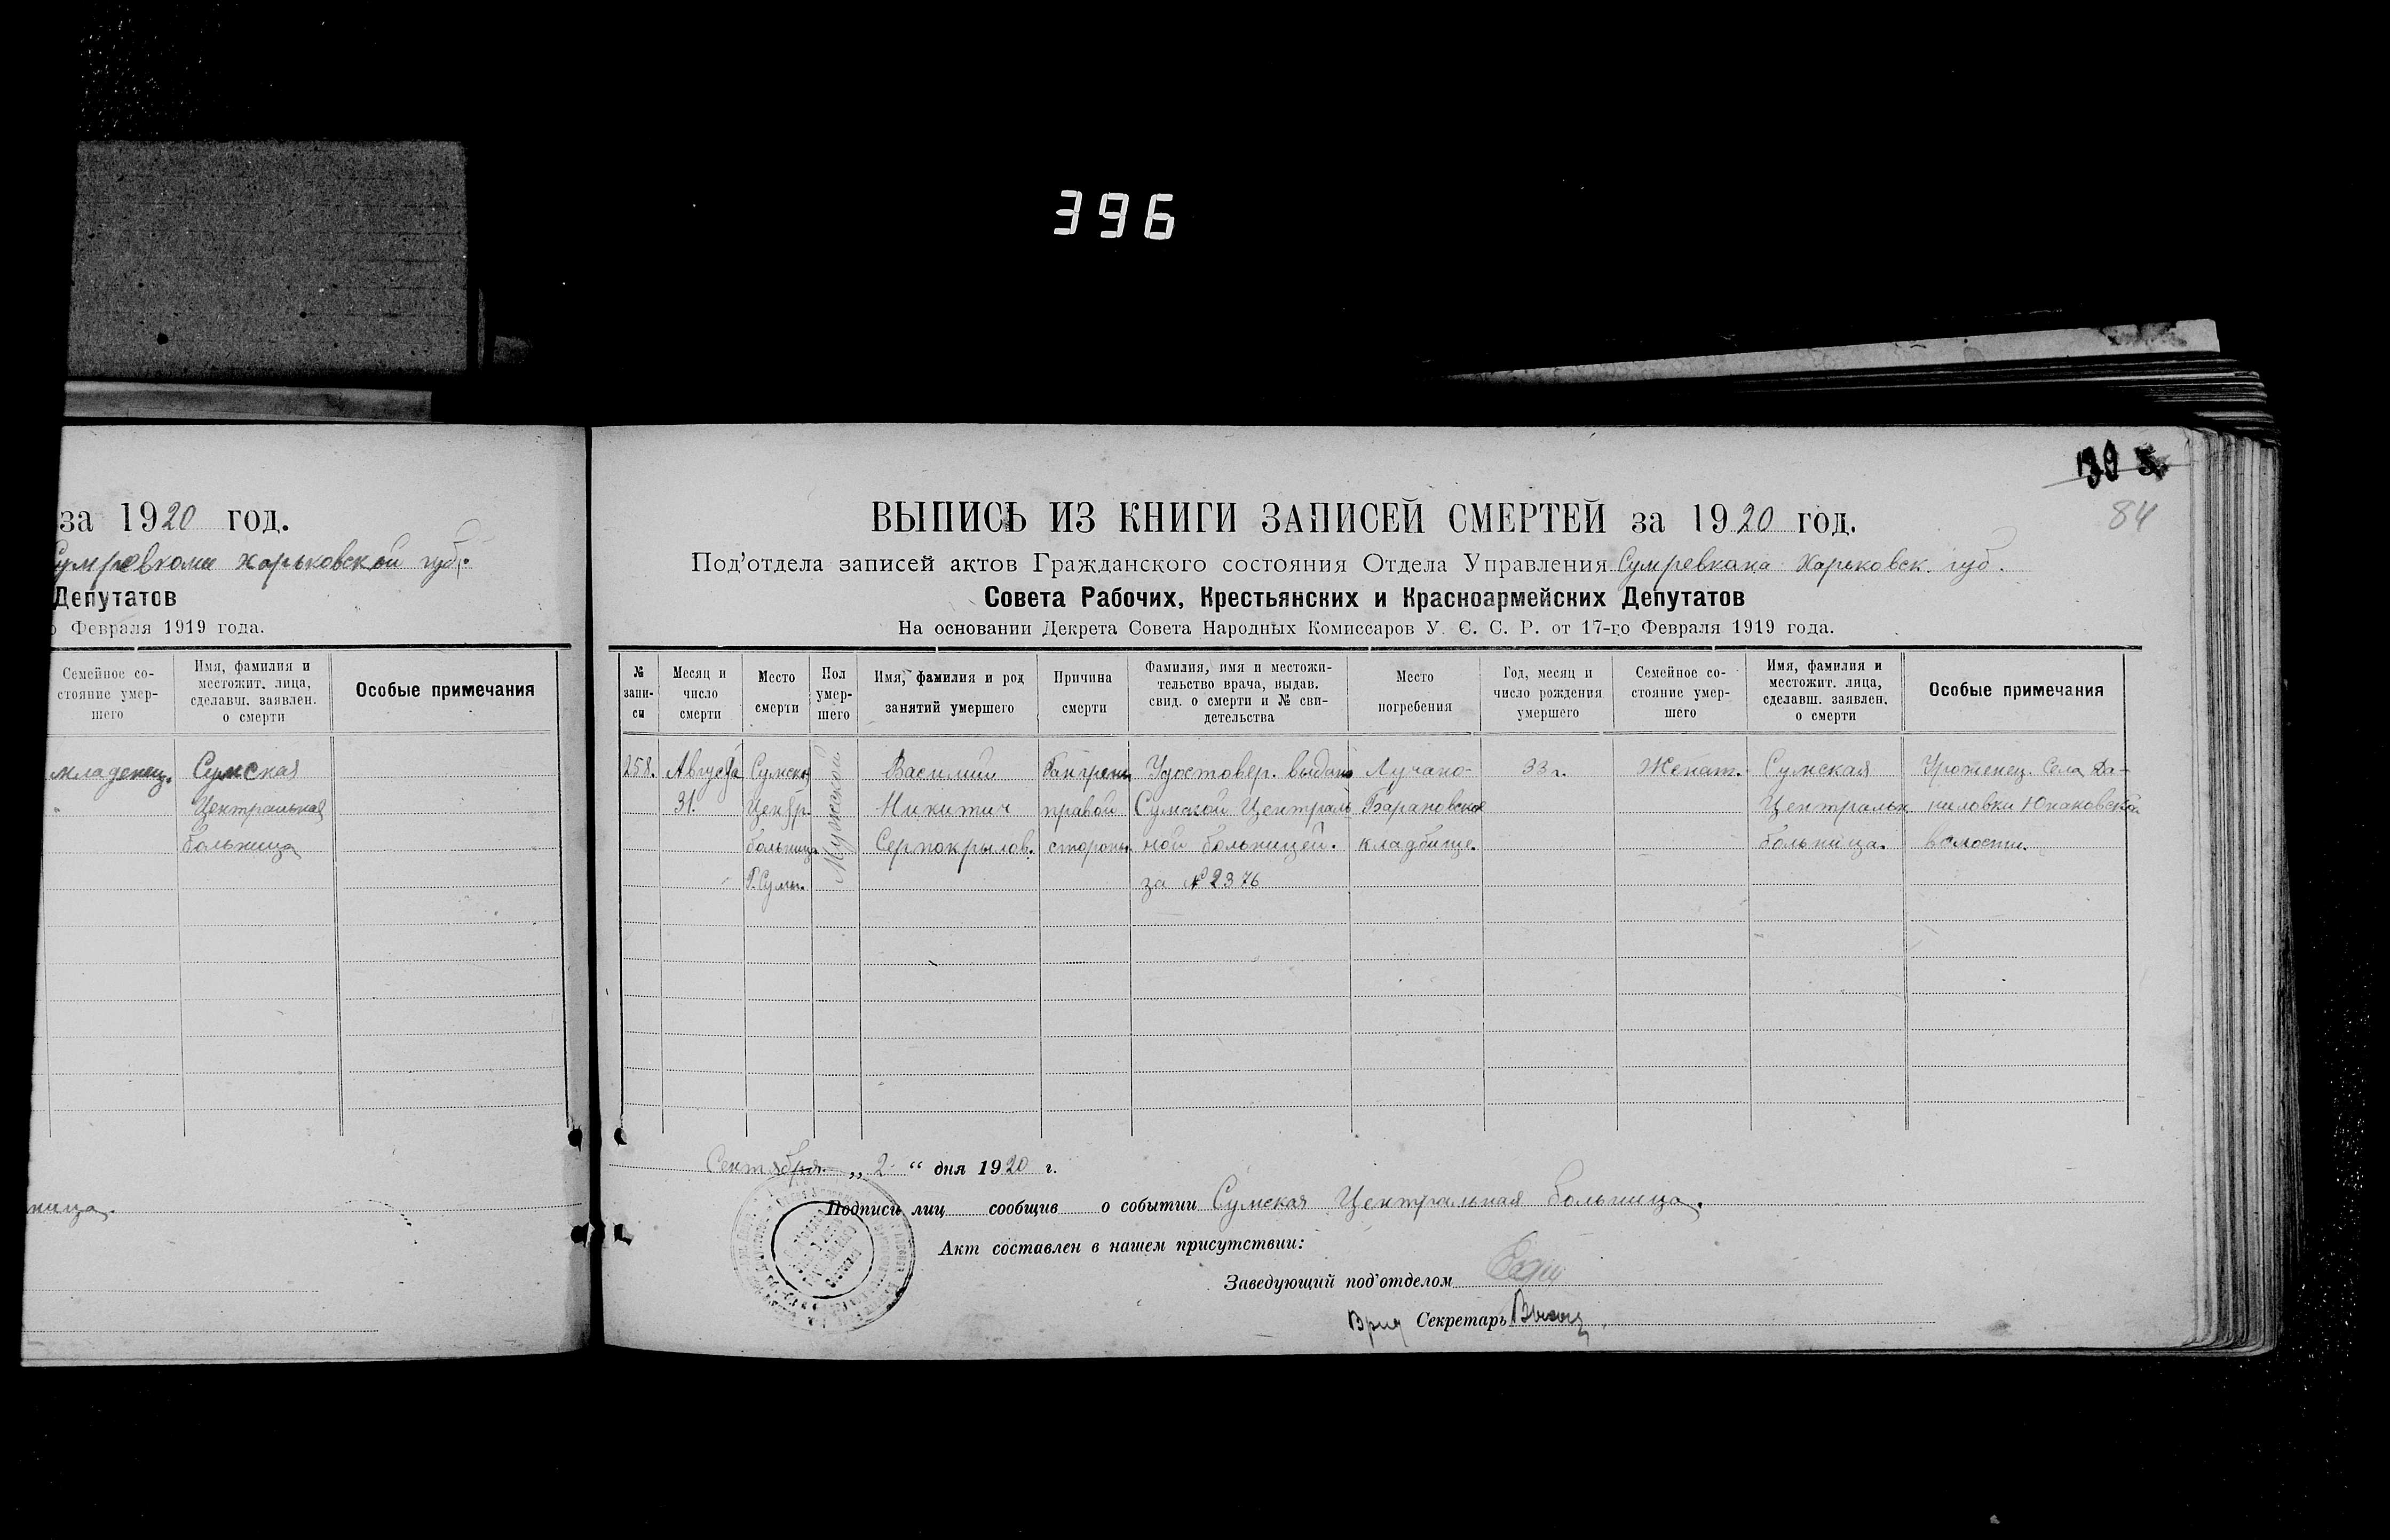 396
за 1920 год.
Сумревкома Харьковской губ.
Депутатов
Февраля 1919 года.
Семейное со-
стояние умер-
шего
Имя, фамилия и
местожит. лица,
сделавш. заявлен.
о смерти
Особые примечания
младенец.
Сумская
Центральная
больница
ница.
84
ВЫПИСЬ ИЗ КНИГИ ЗАПИСЕЙ СМЕРТЕЙ за 1920 год.
Под'отдела записей актов Гражданского состояния Отдела Управления Сумревкома Харьковск. губ.
Совета Рабочих, Крестьянских и Красноармейских Депутатов
На основании Декрета Совета Народных Комиссаров У. С. С. Р. от 17-го Февраля 1919 года.
№
запи-
си
Месяц и
число
смерти
Место
смерти
Пол
умер-
шего
Имя, фамилия и род
занятий умершего
Причина
смерти
Фамилия, имя и местожи-
тельство врача, выдав.
свид. о смерти и № сви-
детельства
Место
погребения
Год, месяц и
число рождения
умершего
Семейное со-
стояние умер-
шего
Имя, фамилия и
местожит. лица,
сделавш. заявлен.
о смерти
Особые примечания
258.
Августа
31.
Сумская
Центр.
больница
Г. Сумы.
Мужской
Василий
Никитич
Серпокрылов.
Гангрена
правой
стороны
Удостовер. выдано
Сумской Централь
ной больницей.
за № 2376
Лучано-
Барановское
кладбище.
33 г.
Женат.
Сумская
Центральн.
больница.
Уроженец Села Да-
ниловки Юнаковской
волости.
Сентября „ 2 “ дня 1920 г.
Подписи лиц сообщив о событии Сумская Центральная больница.
Акт составлен в нашем присутствии:
Заведующий под'отделом
Врид Секретарь